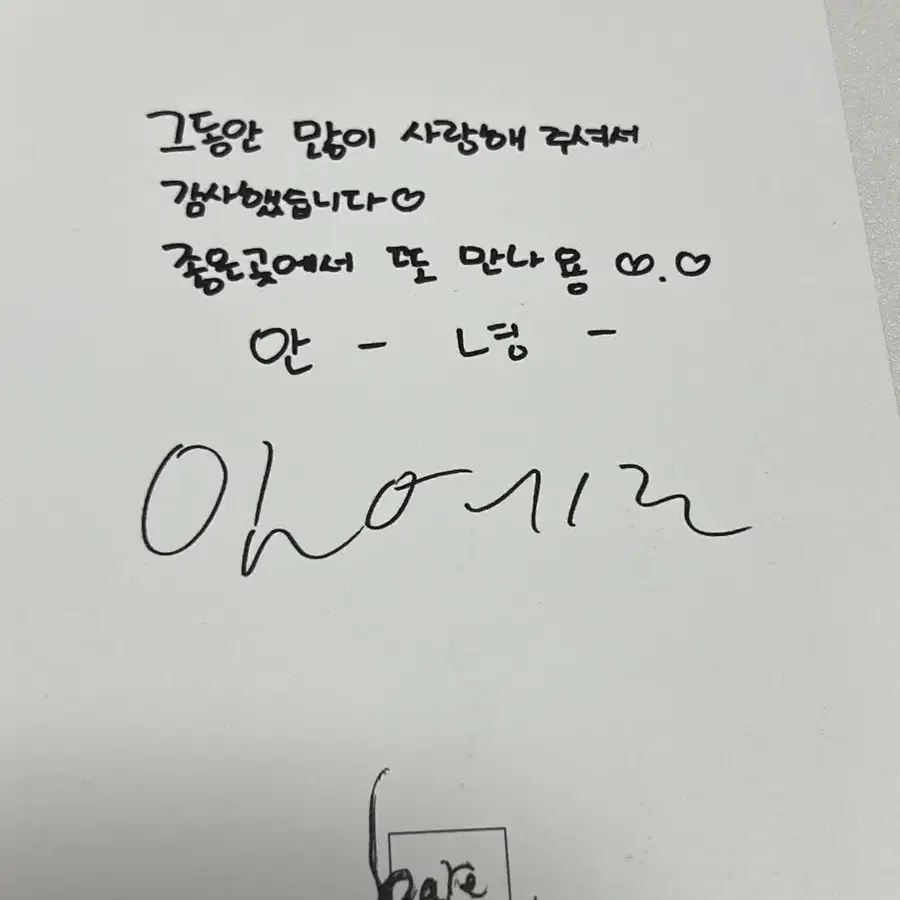 그동안 많이 사랑해 주셔서
감사했습니다♡
좋은곳에서 또 만나용 ♡.♡
안 - 녕 -